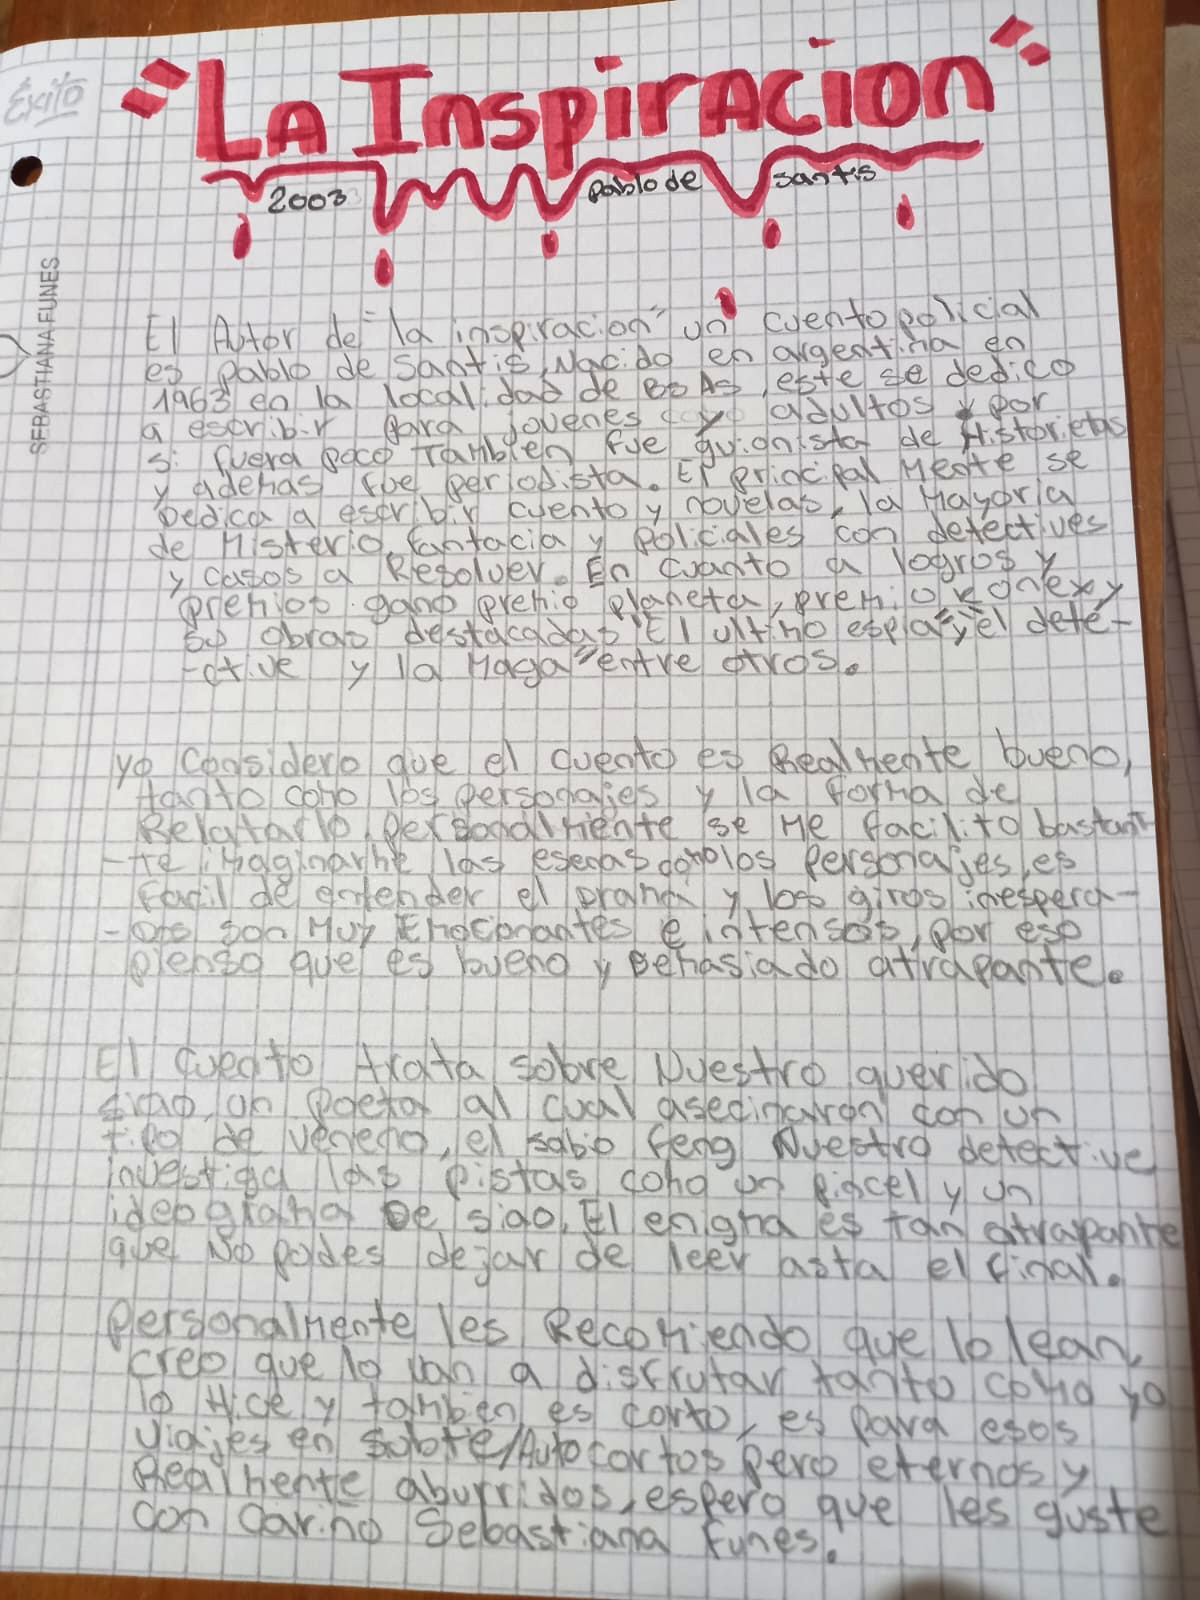 Éxito
"LA InspiRACION"
2003 pablo de santis
SEBASTIANA FUNES
El Autor de "la inspiracion" un cuento policial
es pablo de santis, Nacido en argentina en
1963 en la localidad de Bs As, este se dedico
a escribir para jovenes y adultos y por
si fuera poco Tambien fue guionista de Historietas
y ademas fue periodista. El principal Mente se
Dedica a escribir cuento y novelas, la Mayoria
de Misterio, fantacia y Policiales con detectives
y casos a Resolver. En cuanto a logros y
premios gano premio planeta, premio konex y
sus obras destacadas "El ultimo espia", "el dete-
-ctive y la Maga" entre otros.
yo Considero que el cuento es Realmente bueno,
tanto como los personajes y la forma de
Relatarlo, personalmente se Me facilito bastant
-te imaginarme las esenas como los Personajes, es
facil de entender el Drama y los giros inespera-
-dos son Muy Emocionantes e intensos, por eso
pienso que es bueno y Demasiado atrapante.
El cuento trata sobre Nuestro querido
siao, un poeta al cual asecinaron con un
tipo de veneno, el sabio feng Nuestro detective
investiga las pistas como un pincel y un
ideograma De siao. El enigma es tan atrapante
que No podes dejar de leer asta el final.
Personalmente les Recomiendo que lo lean,
creo que lo van a disfrutar tanto como yo
lo Hice y tambien es corto, es para esos
viajes en subte/Auto cortos pero eternos y
Realmente aburridos, espero que les guste
con cariño Sebastiana Funes.